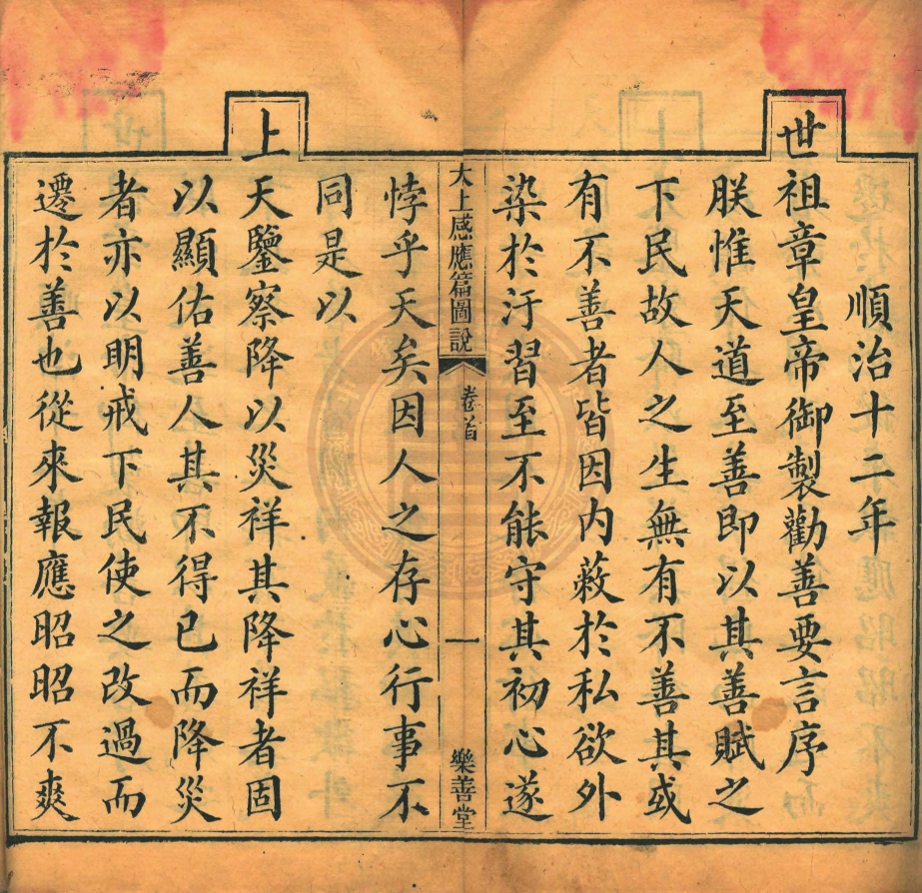 順治十二年
世祖章皇帝御製勸善要言序
朕惟天道至善即以其善賦之
下民故人之生無有不善其或
有不善者皆因内蔽於私欲外
染於汙習至不能守其初心遂
太上感應篇圖說 卷首 一 樂善堂
悖乎天矣因人之存心行事不
同是以
上天鑒察降以災祥其降祥者固
以顯佑善人其不得已而降災
者亦以明戒下民使之改過而
遷於善也從來報應昭昭不爽